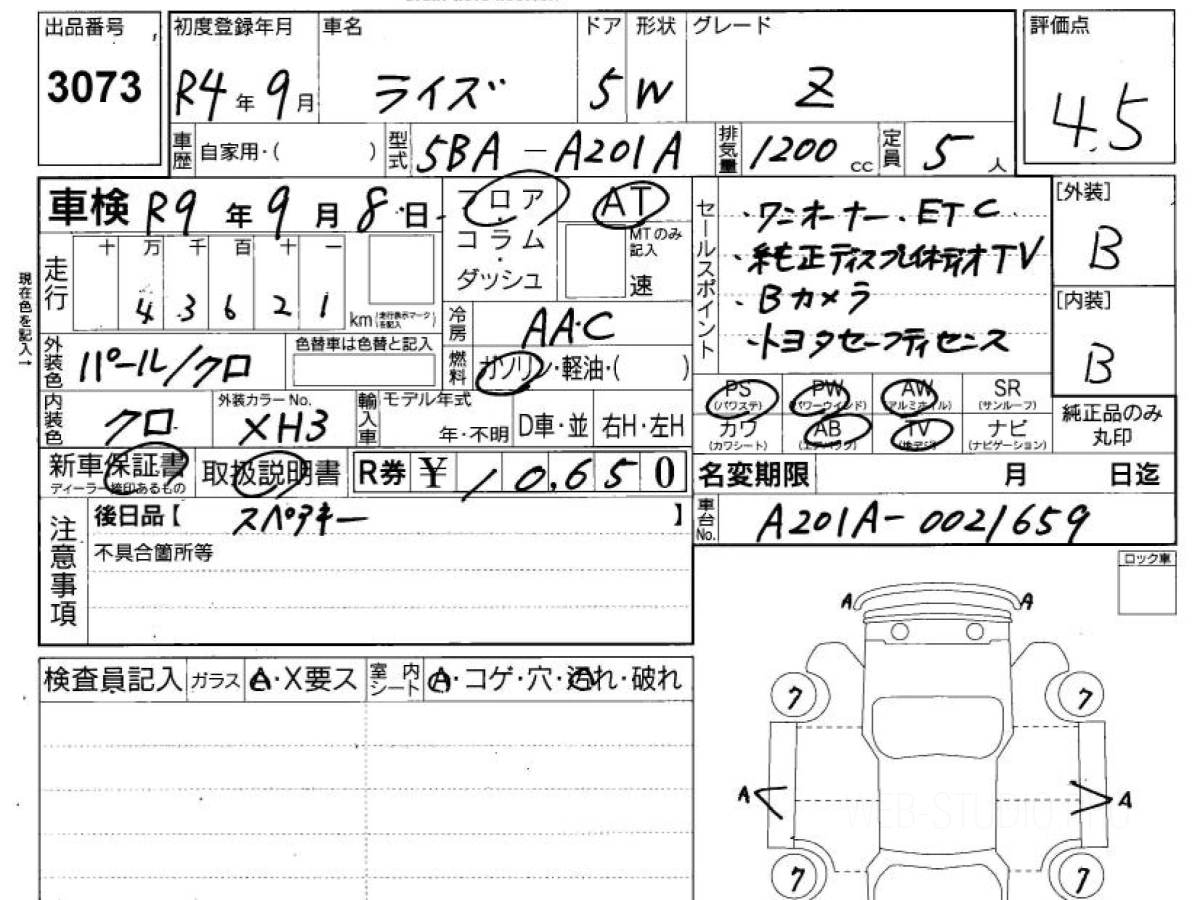 出品番号 初度登録年月 車名 ドア 形状 グレード 評価点
3073 R4年 9月 ライズ 5 W Z 4.5
車歴 自家用・( ) 型式 5BA-A201A 排気量 1200 cc 定員 5人
車検 R9年 9月 8日 フロア AT
コラム MTのみ記入
ダッシュ 速
セールスポイント
・ワンオーナー・ETC
・純正ディスプレイオーディオTV
・Bカメラ
・トヨタセーフティセンス
[外装]
B
[内装]
B
現在色を記入→
走行 十 万 千 百 十 一
4 3 6 2 1 km (走行表示マークを記入)
冷房 AAC
外装色 パール/クロ 色替車は色替と記入
燃料 ガソリン・軽油・( )
内装色 クロ 外装カラーNo. XH3 輸入車 モデル年式 年・不明 D車・並 右H・左H
PS (パワステ) PW (パワーウインド) AW (アルミホイル) SR (サンルーフ)
カワ (カワシート) AB (エアバック) TV (地デジ) ナビ (ナビゲーション)
純正品のみ
丸印
新車保証書 取扱説明書 R券 ¥ 10,650
ディーラー捺印あるもの
名変期限 月 日迄
注意事項
後日品【 スペアキー 】
不具合箇所等
車台No. A201A-0021659
ロック車
A A
検査員記入 ガラス A・X要ス 室内シート A・コゲ・穴・汚れ・破れ
ワ ワ
A A
WEB-STUDIO.PRO
ワ ワ